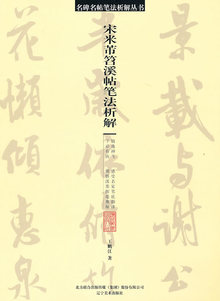 名碑名帖笔法析解丛书
景载与谢公
宋米芾苕溪帖笔法析解
花懒倾惠泉
著
北方联合出版传媒（集团）股份有限公司
辽宁美术出版社